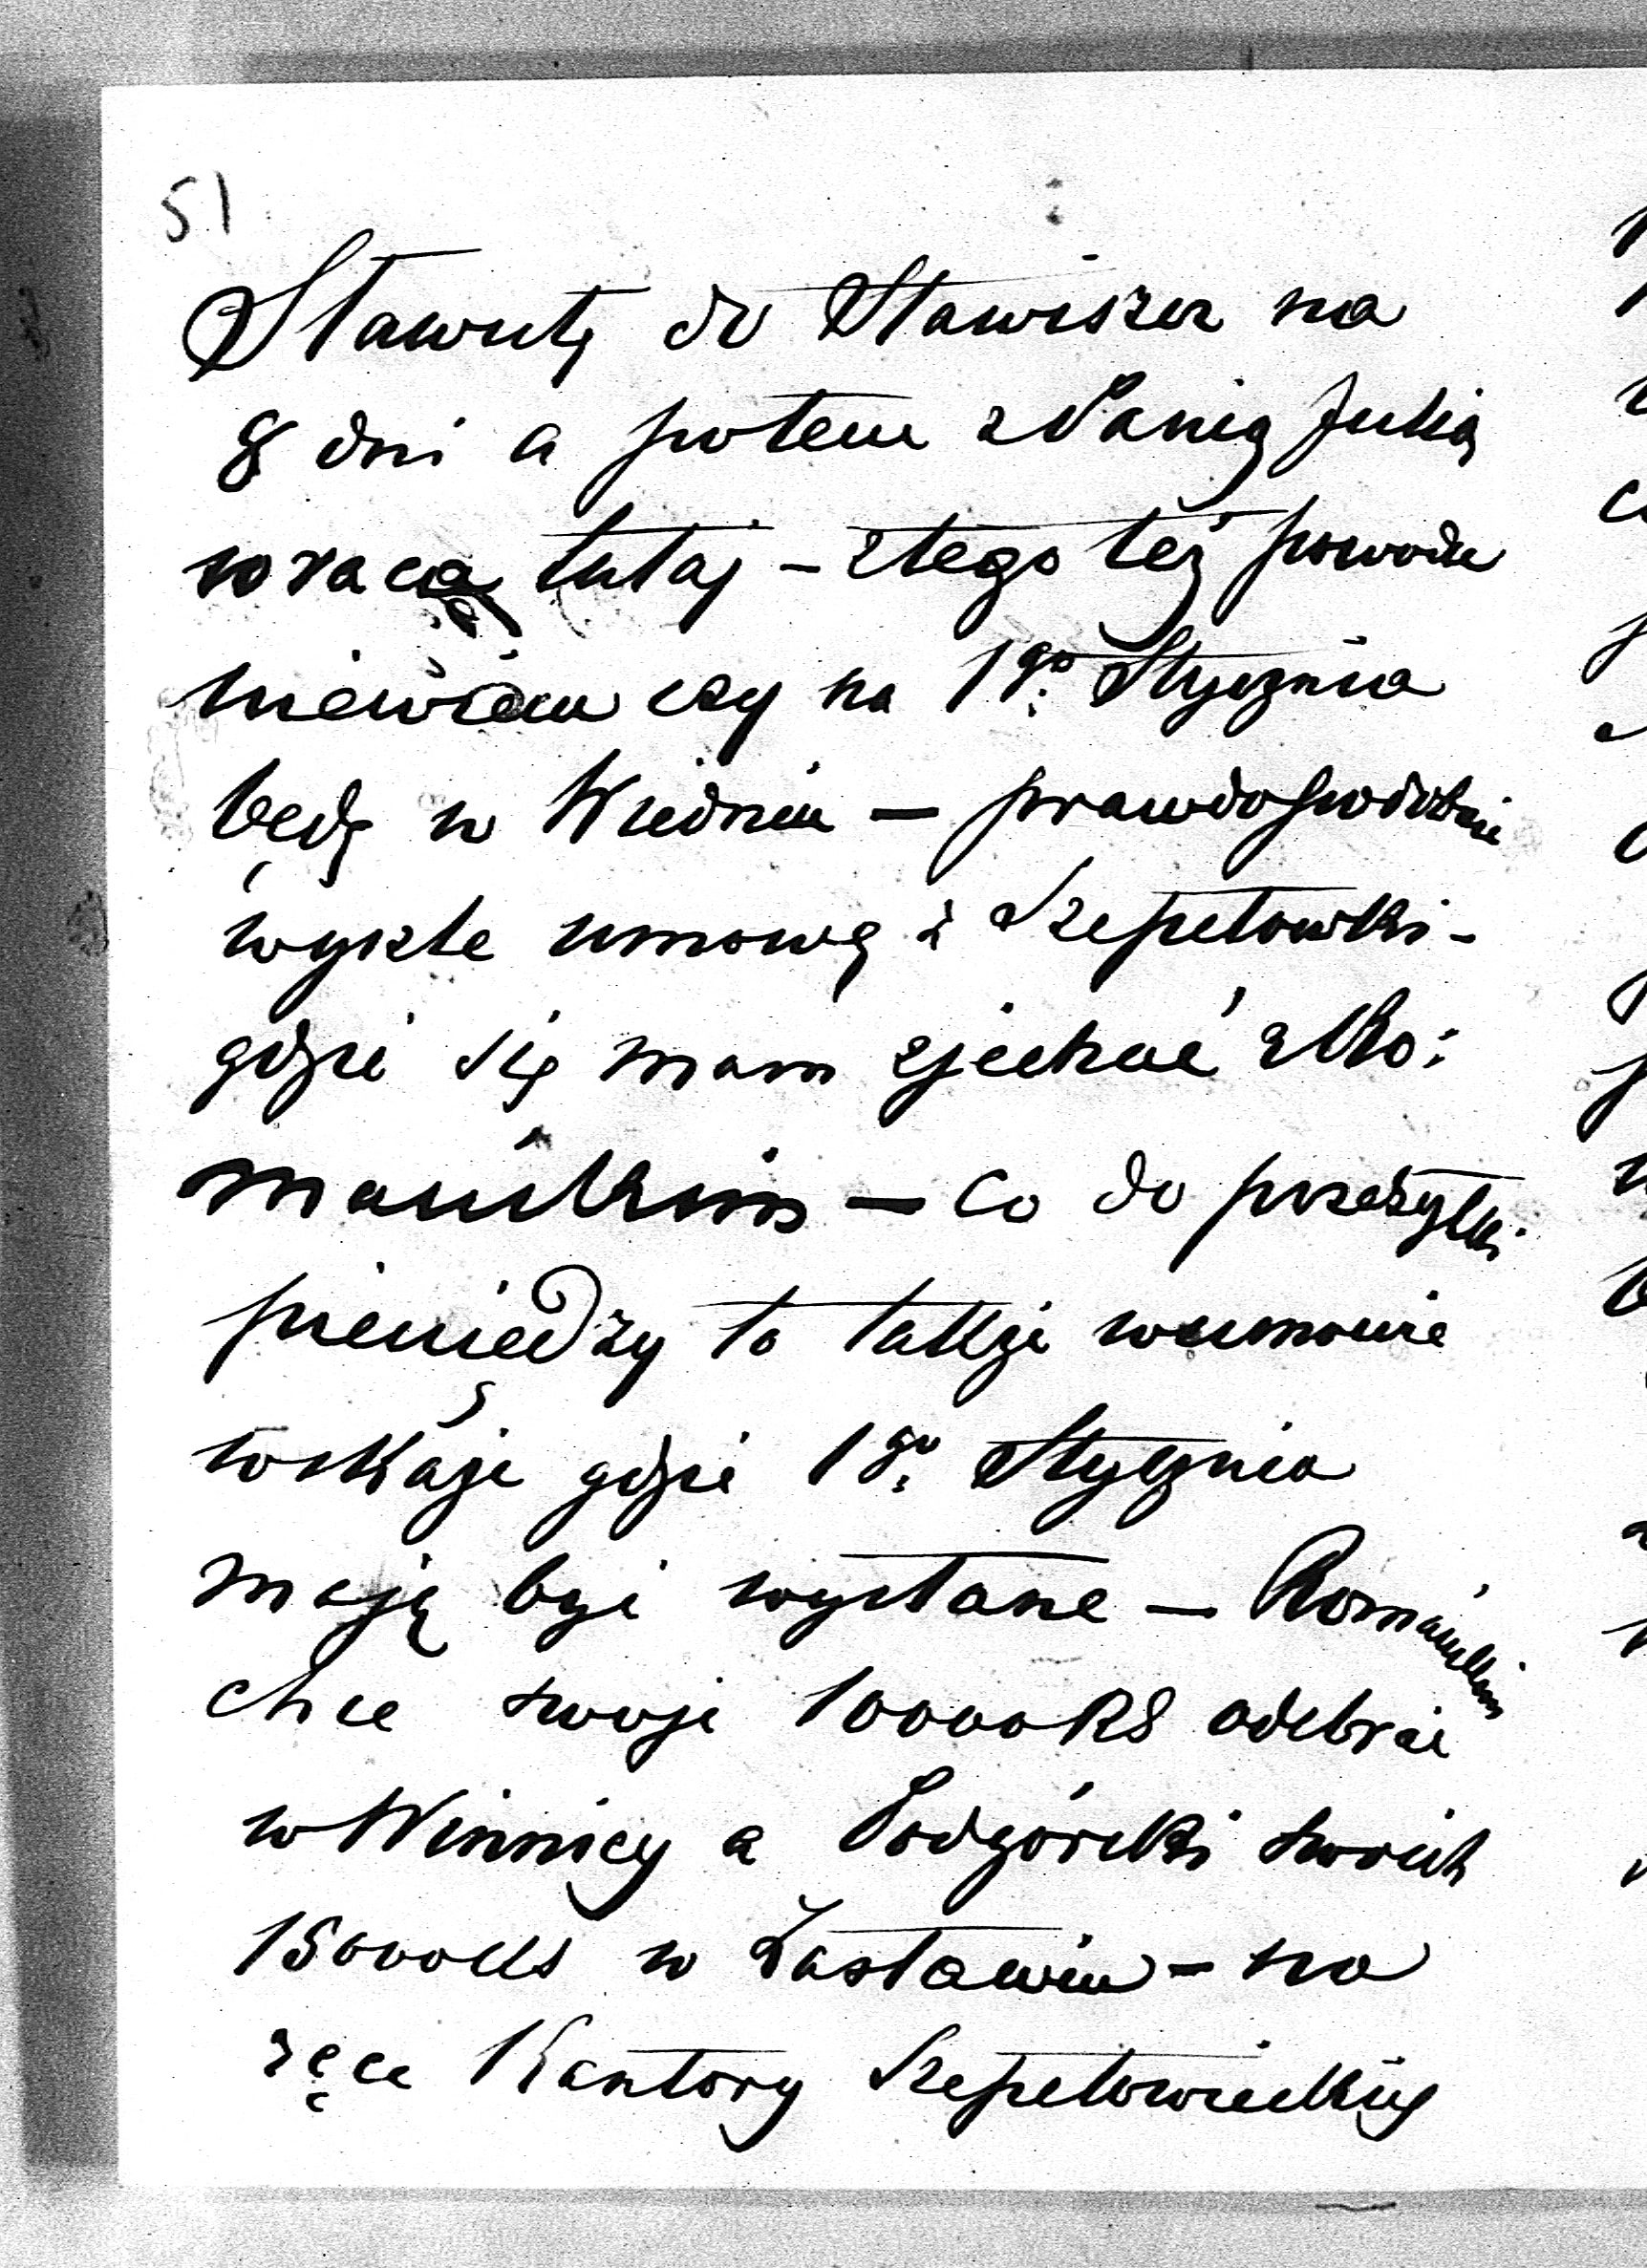 51
Sławutę do Stawiszcz na
8 dni a potem z Panią Julią
wracam tutaj – z tego też powodu
niewiem czy na 1go Stycznia
będę w Wiedniu – prawdopodobnie
wyszle umowę z Szepetowki –
gdzie się mam zjechać z Ro:
mańskim – co do przesyłki
pieniędzy to także w umowie
wskaże gdzie 1go Stycznia
mają być wysłane – Romański
chce swoje 10000 RS odebrać
w Winnicy a Podgórski swoich
15000 RS w Zasławiu – na
ręce Kantory Szepetowieckiej